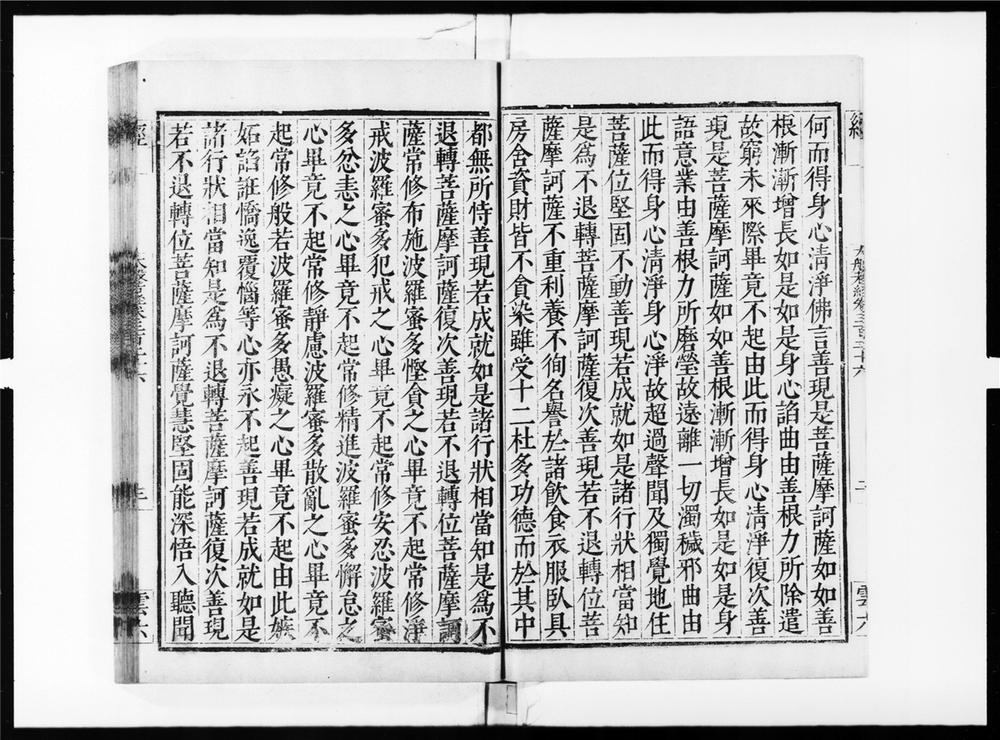 經
大般若經卷三百二十六
二
雲六
何而得身心清淨佛言善現是菩薩摩訶薩如如善
根漸漸增長如是如是身心諂曲由善根力所除遣
故窮未來際畢竟不起由此而得身心清淨復次善
現是菩薩摩訶薩如如善根漸漸增長如是如是身
語意業由善根力所磨瑩故遠離一切濁穢邪曲由
此而得身心清淨身心淨故超過聲聞及獨覺地住
菩薩位堅固不動善現若成就如是諸行狀相當知
是爲不退轉菩薩摩訶薩復次善現若不退轉位菩
薩摩訶薩不重利養不徇名譽於諸飲食衣服臥具
房舍資財皆不貪染雖受十二杜多功德而於其中
都無所恃善現若成就如是諸行狀相當知是爲不
退轉菩薩摩訶薩復次善現若不退轉位菩薩摩訶
薩常修布施波羅蜜多慳貪之心畢竟不起常修淨
戒波羅蜜多犯戒之心畢竟不起常修安忍波羅蜜
多忿恚之心畢竟不起常修精進波羅蜜多懈怠之
心畢竟不起常修靜慮波羅蜜多散亂之心畢竟不
起常修般若波羅蜜多愚癡之心畢竟不起由此嫉
妬諂誑憍逸覆惱等心亦永不起善現若成就如是
諸行狀相當知是爲不退轉菩薩摩訶薩復次善現
若不退轉位菩薩摩訶薩覺慧堅固能深悟入聽聞
經
大般若經卷三百二十六
三
雲六